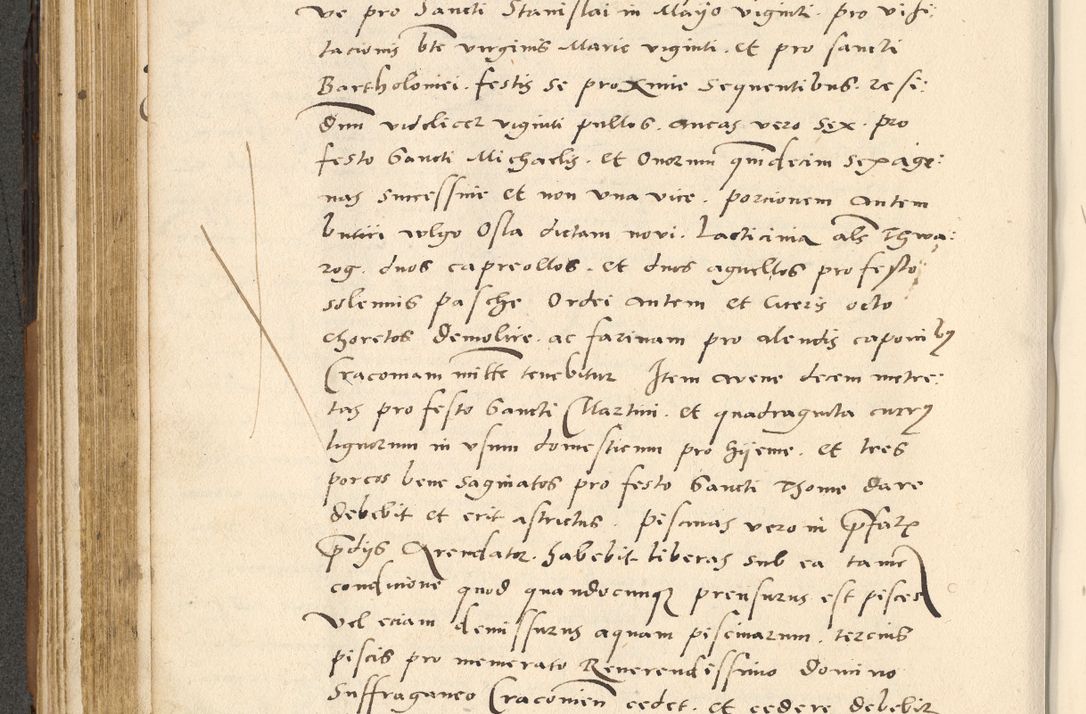 ve pro Sancti Stanislai in Mayo viginti . pro visi:
tacionis bte virginis Marie viginti . et pro sancti
Bartholomei . festis se proxime sequentibus . rese:
dum videlicet viginti pullos . aucas vero sex . pro
festo Sancti Michaelis . et Ouorum quindecim sexage:
nas successiue et non vna vice . porcionem autem
butiri wlgo Osla dictam novi . Lacticinia als Thwa:
rog . duos capreollos . et duos agnellos pro festo
solennis pasche Ordei autem et Citeris octo
choretos demolire . ac farinam pro alendis caponibus
Cracomam mitte tenebitur Item avene decem metre:
tas pro festo Sancti Martini . et quadraginta currus
lignorum in vsum domesticum pro hijeme . et tres
porcos bene saginatos pro festo Sancti Thome dare
debebit et erit astrictus . piscinas vero in pfatis
pdijs Arendator . habebit liberas sub ea tamen
condicione quod quandocunque prensurus est pisces
Vel eciam demissurus aquam piscinarum . tercius
piscis pro memorato Reverendissimo domino
Suffraganeo Cracovien cedet . et cedere debebit